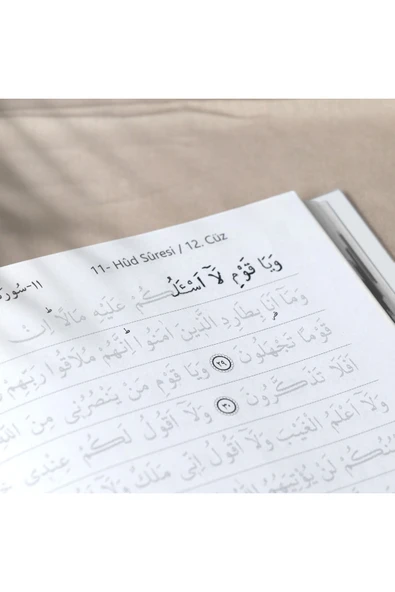 11- Hûd Sûresi / 12. Cüz
١١-سُورَة
وَيَا قَوْمِ لَٓا اَسْـَٔلُكُمْ عَلَيْهِ مَالًاۜ اِنْ
وَمَٓا اَنَا۬ بِطَارِدِ الَّذ۪ينَ اٰمَنُواۜ اِنَّهُمْ مُلَاقُوا رَبِّهِمْ
قَوْمًا تَجْهَلُونَ ﴿٢٩﴾ وَيَا قَوْمِ مَنْ يَنْصُرُن۪ي مِنَ
اَفَلَا تَذَكَّرُونَ ﴿٣٠﴾ وَلَٓا اَقُولُ لَكُمْ عِنْد۪ي
وَلَٓا اَعْلَمُ الْغَيْبَ وَلَٓا اَقُولُ اِنّ۪ي مَلَكٌ وَلَٓا
لَنْ يُؤْتِيَهُمُ